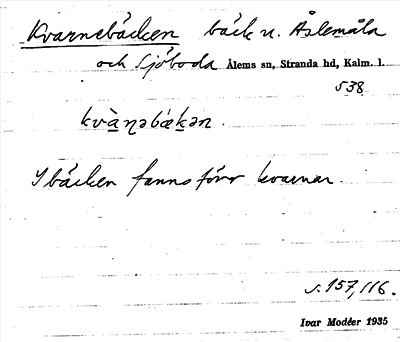 Kvarnebäcken bäck n. Åslemåla
och Sjöboda Ålems sn, Stranda hd, Kalm. l.
538
kvàṇəbækən.
I bäcken fanns förr kvarnar.
s. 157, 116.
Ivar Modéer 1935